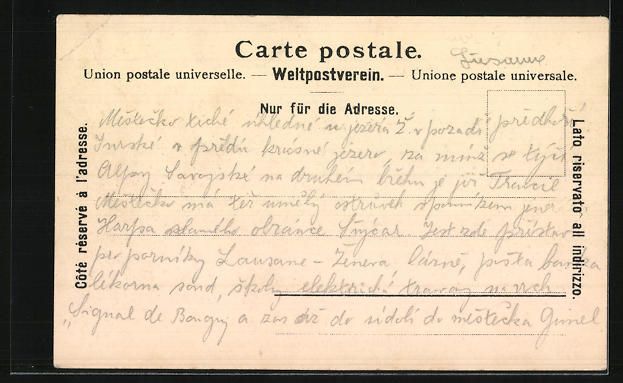 Carte postale.
Lausanne
Union postale universelle. — Weltpostverein. — Unione postale universale.
Nur für die Adresse.
Côté réservé à l'adresse.
Lato riservato all indirizzo.
Městečko tiché úhledné u jezera Ž. v pozadí předhoří
Jurské v předu krásné jezero, za nímž se tyčí
Alpy Savojské na druhém břehu je již Francie
Městečko má též umělý ostrůvek s pomníkem gener
Harpa obránce Švýcar. Jest zde přístav
pro parníky Lausane - Ženeva lázně, pošta banka
lékárna soud, školy elektrická tramvay na vrch
„Signal de Bougy a zas níž do údolí do městečka Gimel